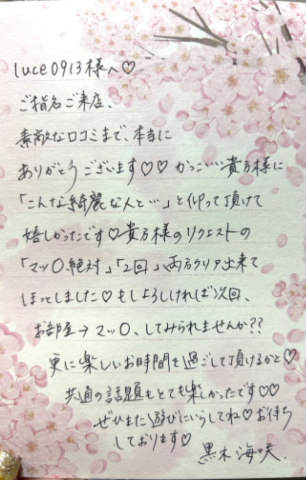 luce0913様へ♡
ご指名ご来店、
素敵な口コミまで、本当に
ありがとうございます♡♡ かっこいい貴方様に
「こんな綺麗な人と…」と仰って頂けて
嬉しかったです♡貴方様のリクエストの
「マッ〇絶対」「2回」両方クリア出来て
ほっとしました♡もしよろしければ次回、
お部屋→マッ〇、してみられませんか??
更に楽しいお時間を過ごして頂けるかと♡
共通の話題もとても楽しかったです♡♡
ぜひまた遊びにいらしてね♡お待ち
しております♡
黒木 海咲.